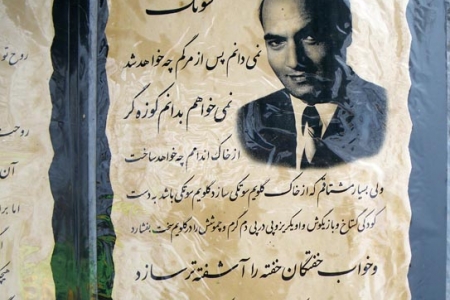 سوتک
نمی دانم پس از مرگم چه خواهد شد
نمی خواهم بدانم کوزه گر
از خاک اندامم چه خواهد ساخت
ولی بسیار مشتاقم که از خاک گلویم سوتکی سازد گلویم سوتکی باشد به دست
کودکی گستاخ و بازیگوش و او یکریز و پی در پی دم گرم و چموشش را در گلویم سخت بفشارد
و خواب خفتگان خفته را آشفته تر سازد
روح تو
روحت
آن
اما